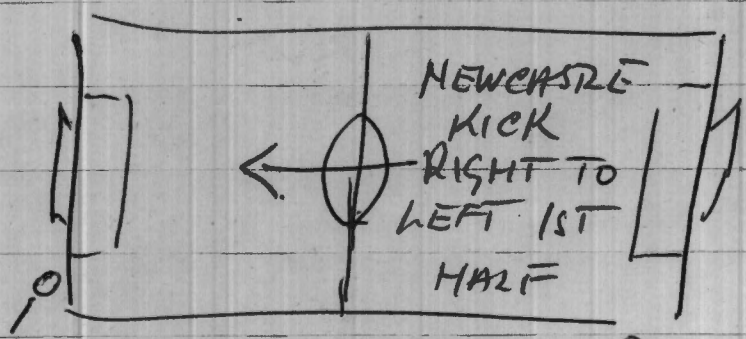 NEWCASTLE
KICK
RIGHT TO
LEFT 1ST
HALF